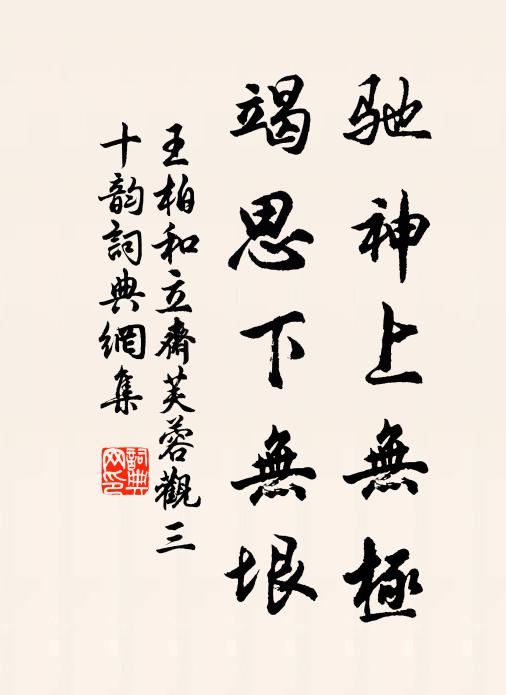 馳神上無極
竭思下無垠
王柏和立齋芙蓉觀三
十韵詞典網集
詞典
网印